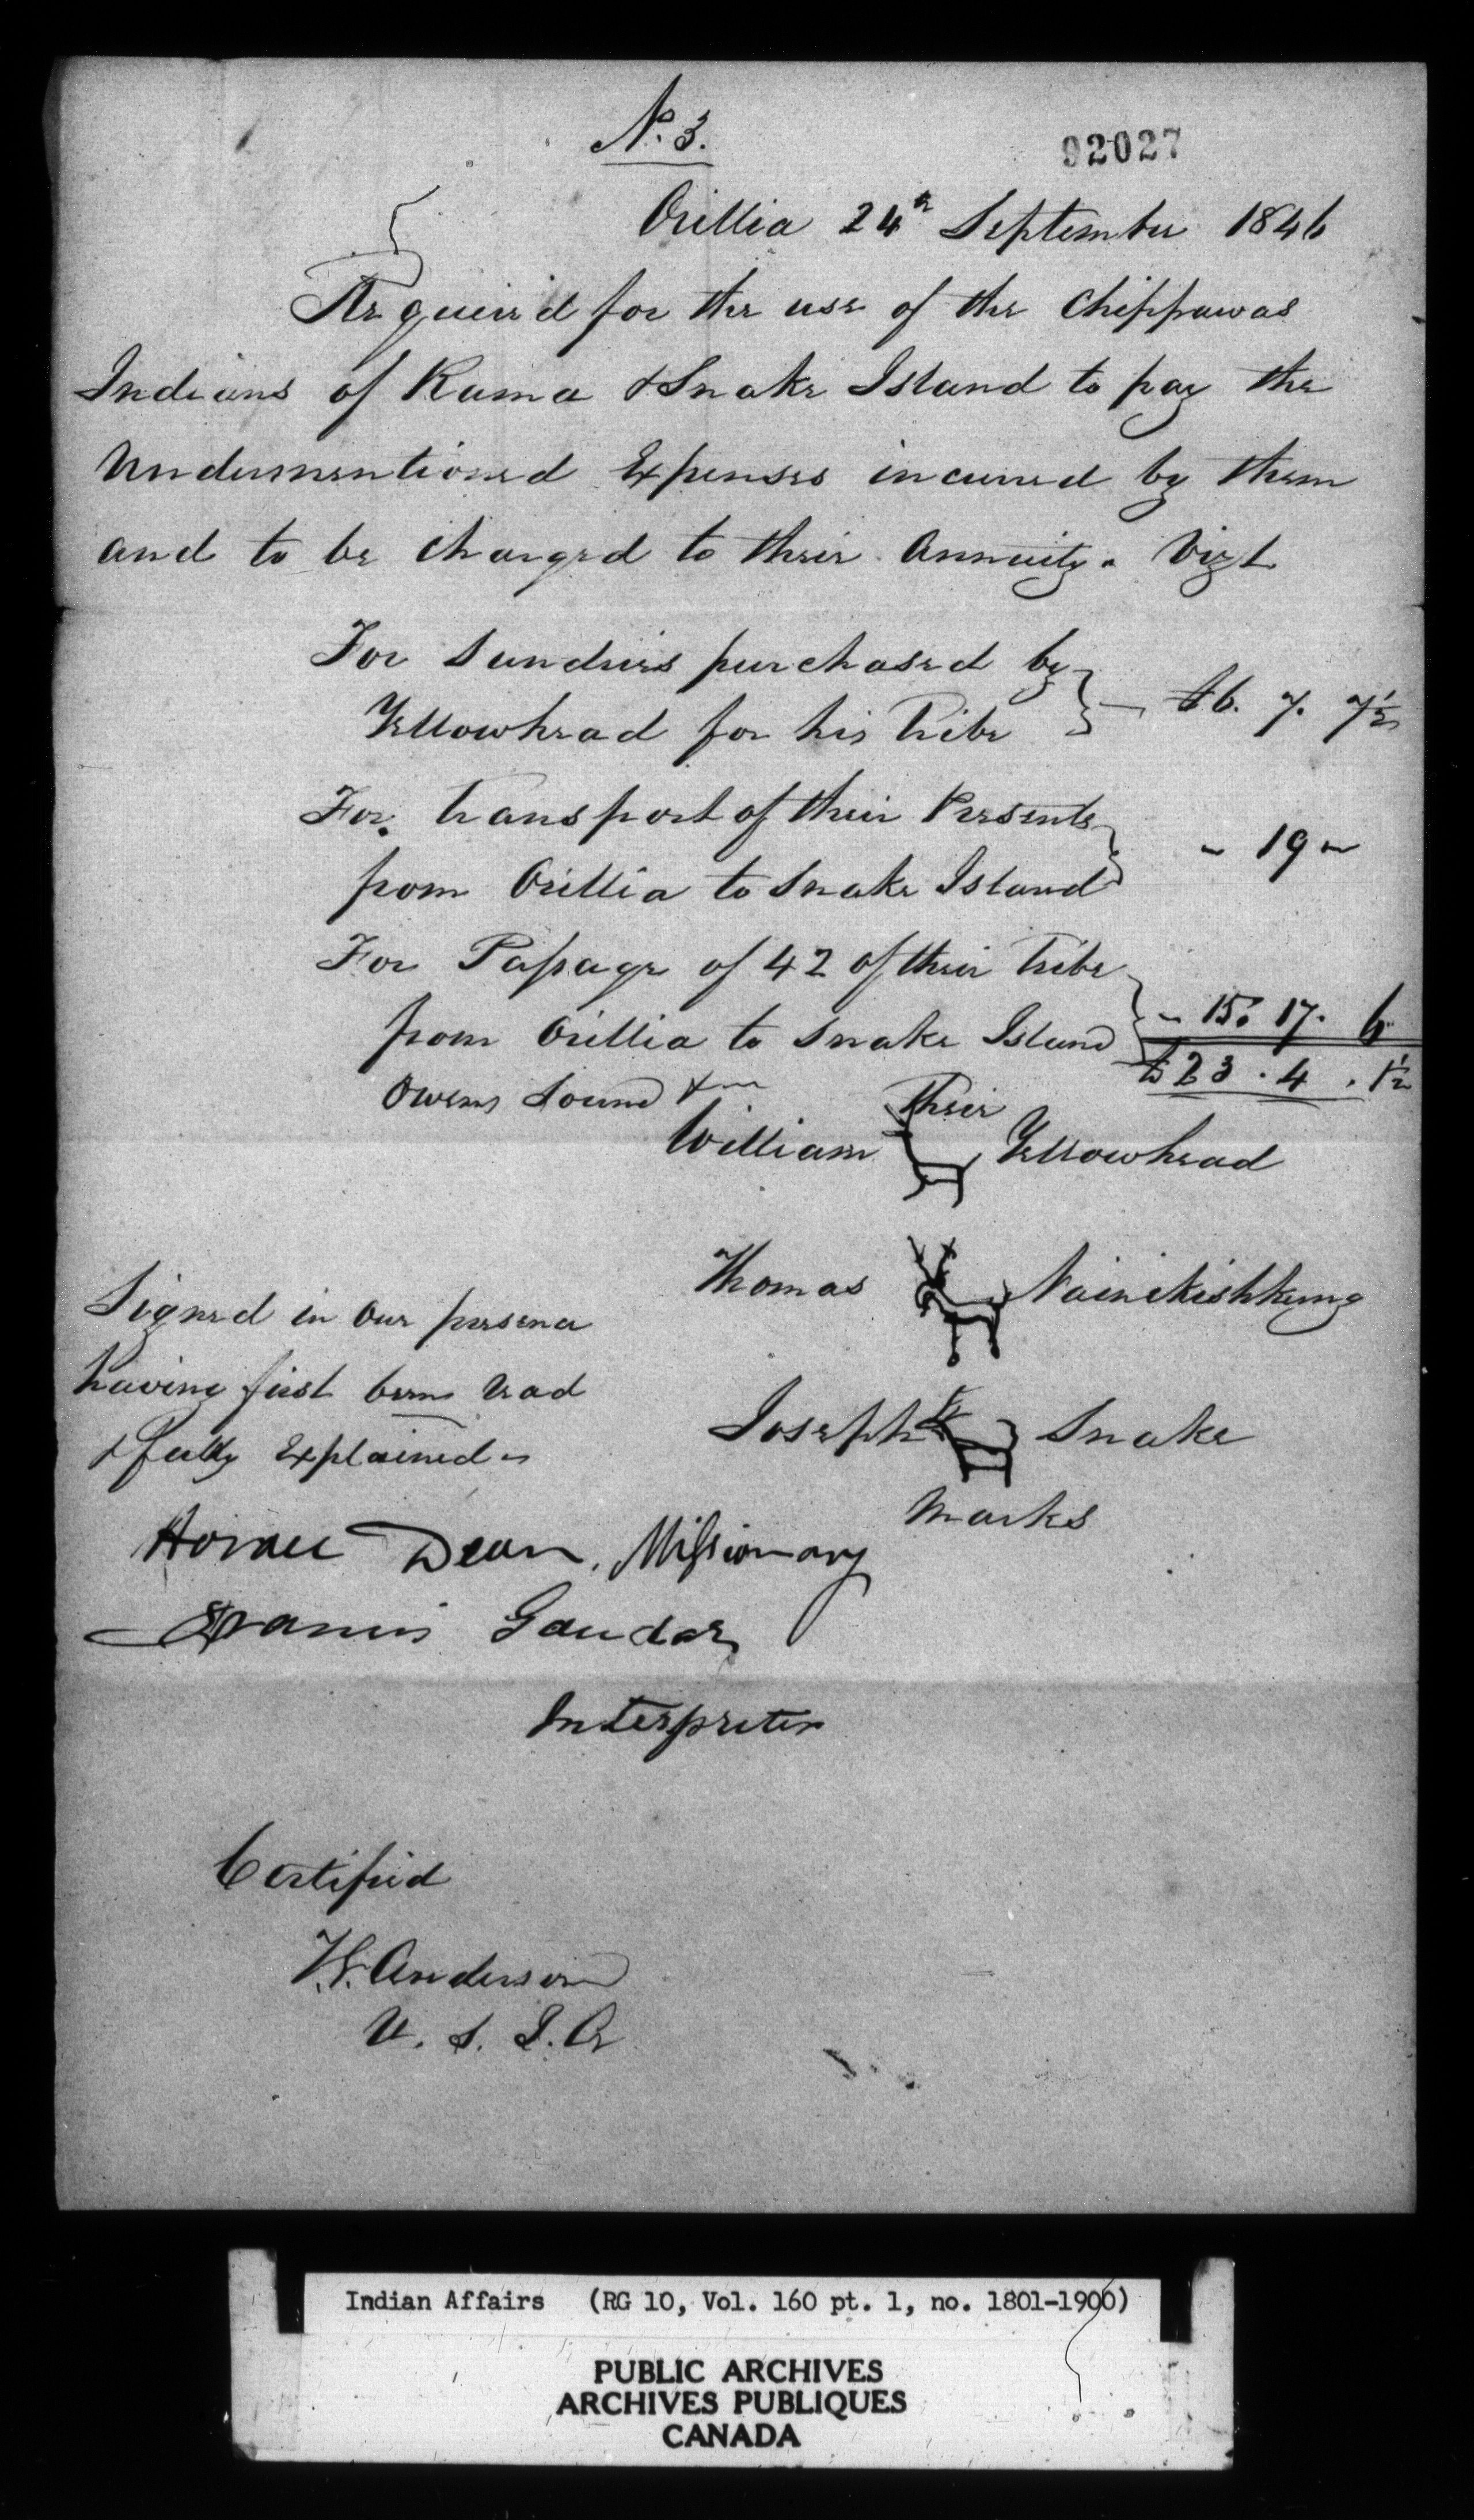 No. 3.
92027
Orillia 24th September 1846
Required for the use of the Chippawas
Indians of Rama & Snake Island to pay the
Undermentioned Expenses incurred by them
and to be Charged to their Annuity. Vizt
For Sundries purchased by
Yellowhead for his Tribe } — £6. 7. 7½
For transport of their Presents
from Orillia to Snake Island } " 19 "
For Passage of 42 of their Tribe
from Orillia to Snake Island } " 15. 17. 6
Owens Sound &c £23. 4. 1½
Their
William Yellowhead
Thomas Nainikishkung
Joseph Snake
Marks
Signed in Our presence
having first been read
& fully Explained
Horace Dean, Missionary
Francis Gaudar
Interpreter
Certified
Anderson
V. S. I. A
Indian Affairs (RG 10, Vol. 160 pt. 1, no. 1801-1900)
PUBLIC ARCHIVES
ARCHIVES PUBLIQUES
CANADA